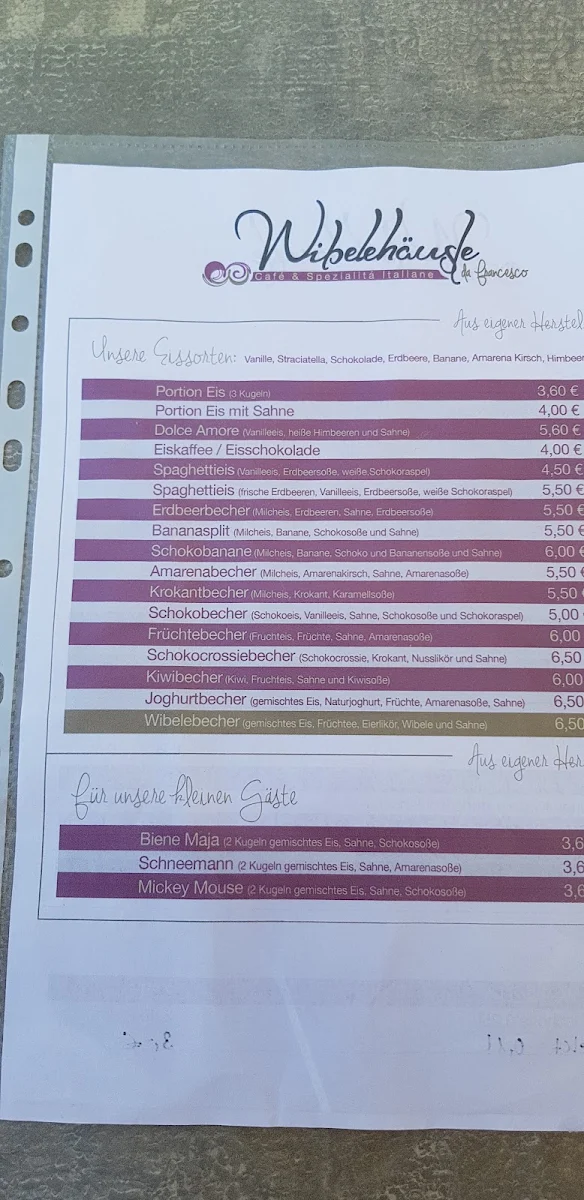 Wibelehäusle
Café & Spezialitá Italiane da francesco
Aus eigener Herstel
Unsere Eissorten: Vanille, Straciatella, Schokolade, Erdbeere, Banane, Amarena Kirsch, Himbeer
Portion Eis (3 Kugeln) 3,60 €
Portion Eis mit Sahne 4,00 €
Dolce Amore (Vanilleeis, heiße Himbeeren und Sahne) 5,60 €
Eiskaffee / Eisschokolade 4,00 €
Spaghettieis (Vanilleeis, Erdbeersoße, weiße Schokoraspel) 4,50 €
Spaghettieis (frische Erdbeeren, Vanilleeis, Erdbeersoße, weiße Schokoraspel) 5,50 €
Erdbeerbecher (Milcheis, Erdbeeren, Sahne, Erdbeersoße) 5,50 €
Bananasplit (Milcheis, Banane, Schokosoße und Sahne) 5,50 €
Schokobanane (Milcheis, Banane, Schoko und Bananensoße und Sahne) 6,00 €
Amarenabecher (Milcheis, Amarenakirsch, Sahne, Amarenasoße) 5,50 €
Krokantbecher (Milcheis, Krokant, Karamellsoße) 5,50
Schokobecher (Schokoeis, Vanilleeis, Sahne, Schokosoße und Schokoraspel) 5,00
Früchtebecher (Fruchteis, Früchte, Sahne, Amarenasoße) 6,00
Schokocrossiebecher (Schokocrossie, Krokant, Nusslikör und Sahne) 6,50
Kiwibecher (Kiwi, Fruchteis, Sahne und Kiwisoße) 6,00
Joghurtbecher (gemischtes Eis, Naturjoghurt, Früchte, Amarenasoße, Sahne) 6,50
Wibelebecher (gemischtes Eis, Früchtee, Eierlikör, Wibele und Sahne) 6,50
Aus eigener Her
für unsere kleinen Gäste
Biene Maja (2 Kugeln gemischtes Eis, Sahne, Schokosoße) 3,6
Schneemann (2 Kugeln gemischtes Eis, Sahne, Amarenasoße) 3,6
Mickey Mouse (2 Kugeln gemischtes Eis, Sahne, Schokosoße) 3,6